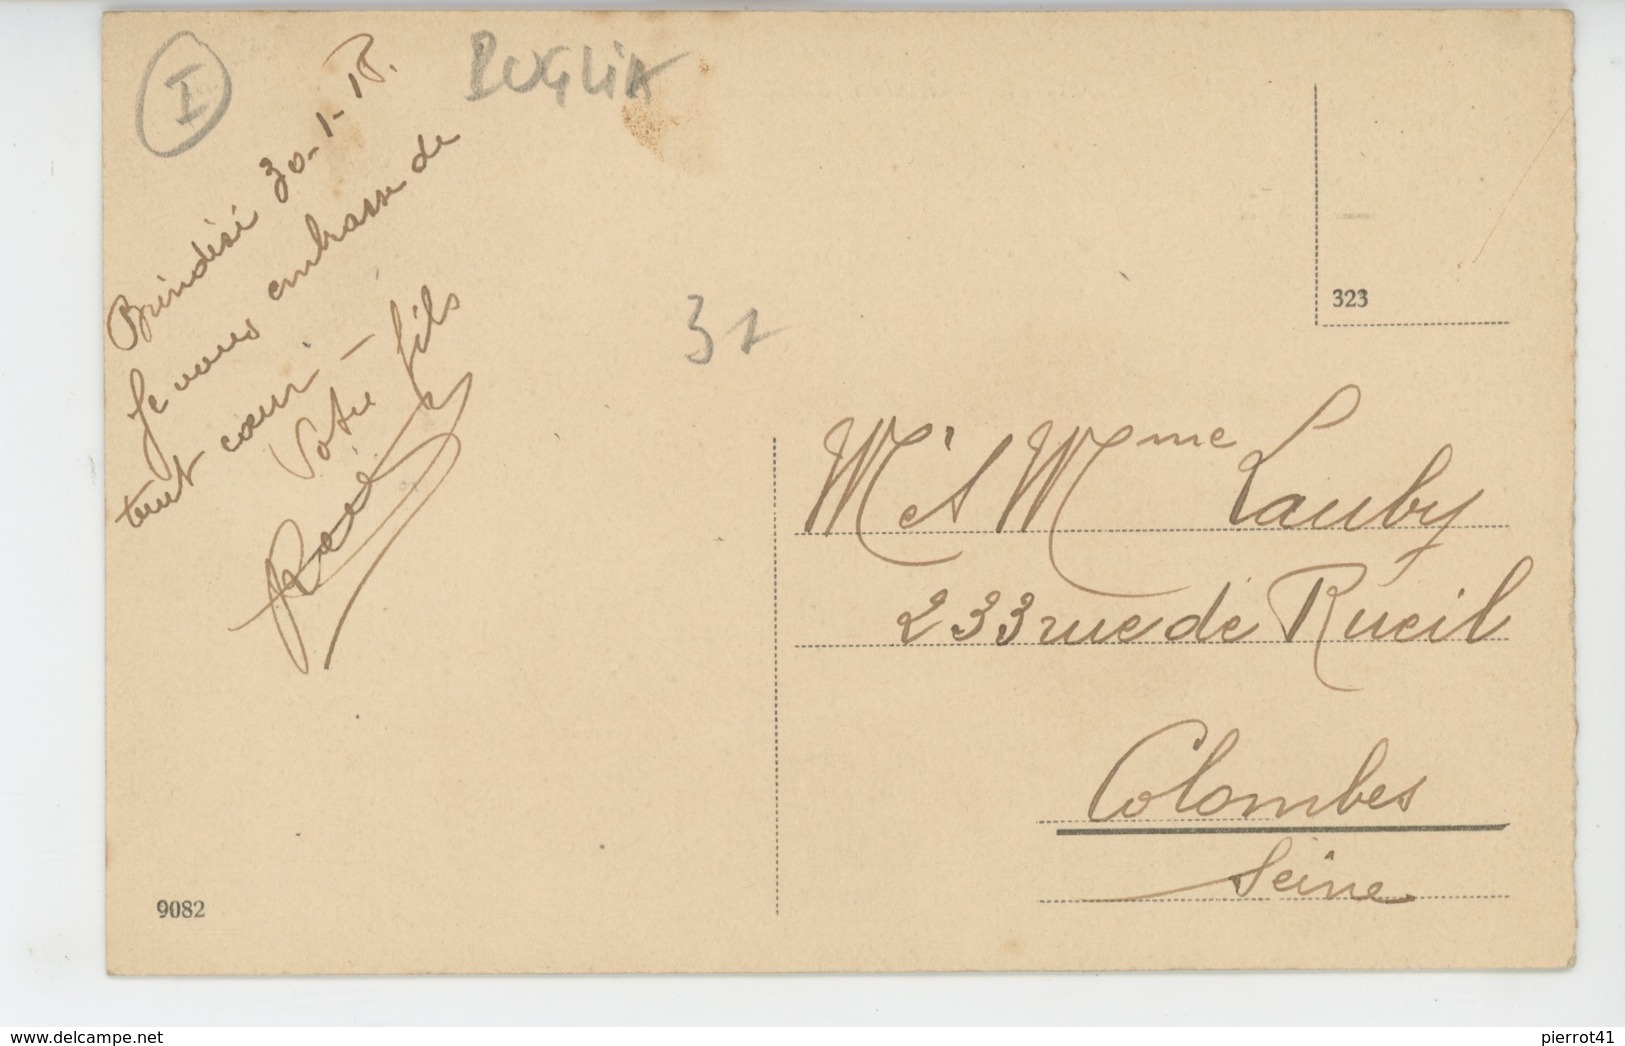 I
PUGLIA
Brindisi 30-1-18.
Je vous embrasse de
tout cœur. –
Votre fils
323
31
Mr & Mme Lauby
233 rue de Rueil
Colombes
Seine
9082
www.delcampe.net
pierrot41